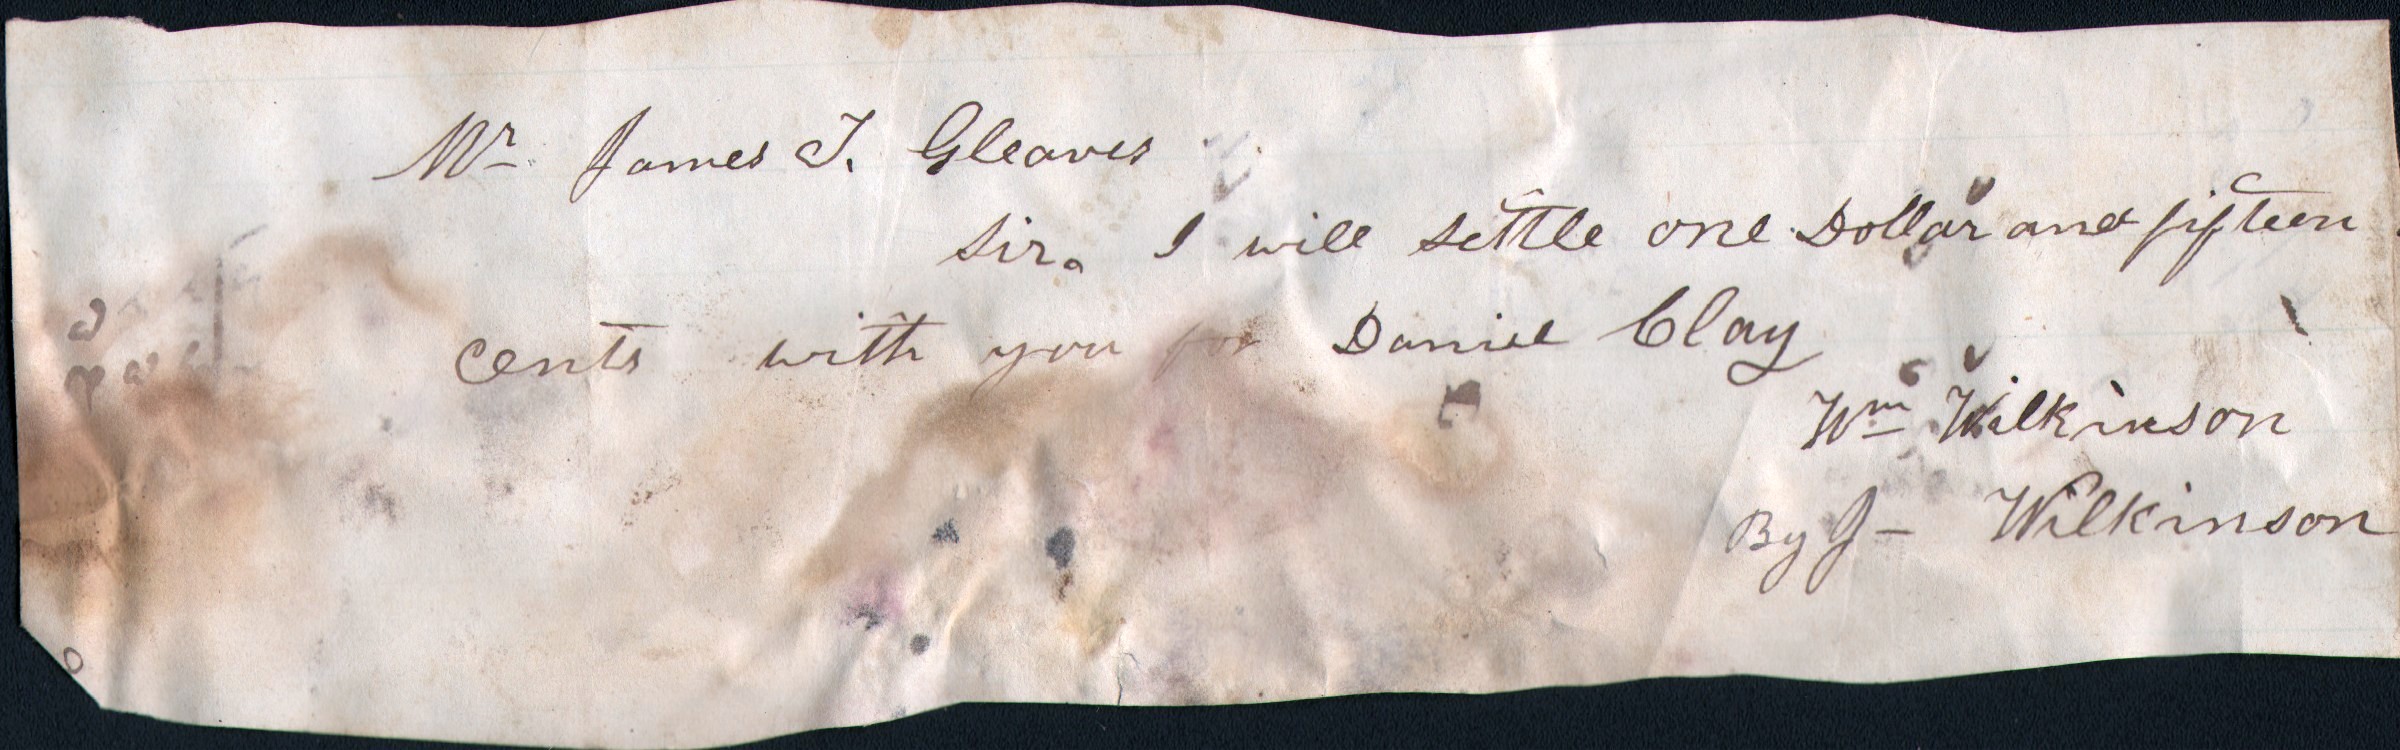 Mr. James T. Gleaves
Sir. I will settle one Dollar and fifteen
cents with you for Daniel Clay
Wm Wilkinson
By J- Wilkinson